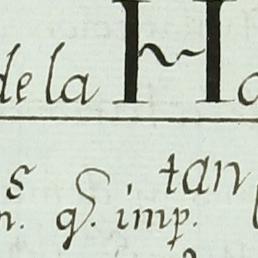 de la H
s tan
n. q. imp.